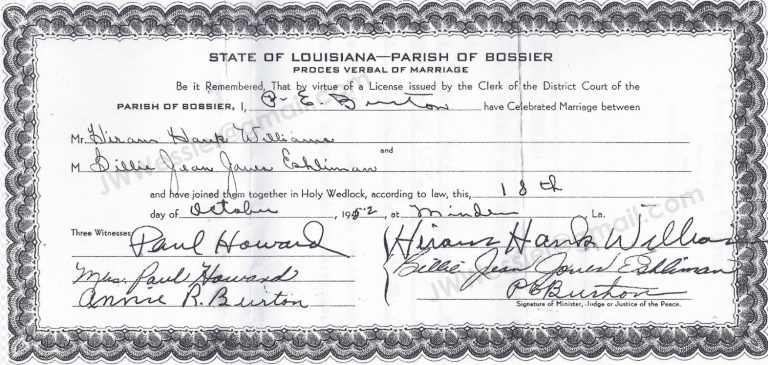 STATE OF LOUISIANA—PARISH OF BOSSIER
PROCES VERBAL OF MARRIAGE
Be it Remembered, That by virtue of a License issued by the Clerk of the District Court of the
PARISH OF BOSSIER, I, P. E. Burton have Celebrated Marriage between
Mr. Hiram Hank Williams
and
M Billie Jean Jones Eshliman
and have joined them together in Holy Wedlock, according to law, this, 18th
day of October, 1952, at Minden La.
Three Witnesses:
Paul Howard
Mrs. Paul Howard
Annie R. Burton
Hiram Hank Williams
Billie Jean Jones Eshliman
P E Burton
Signature of Minister, Judge or Justice of the Peace.